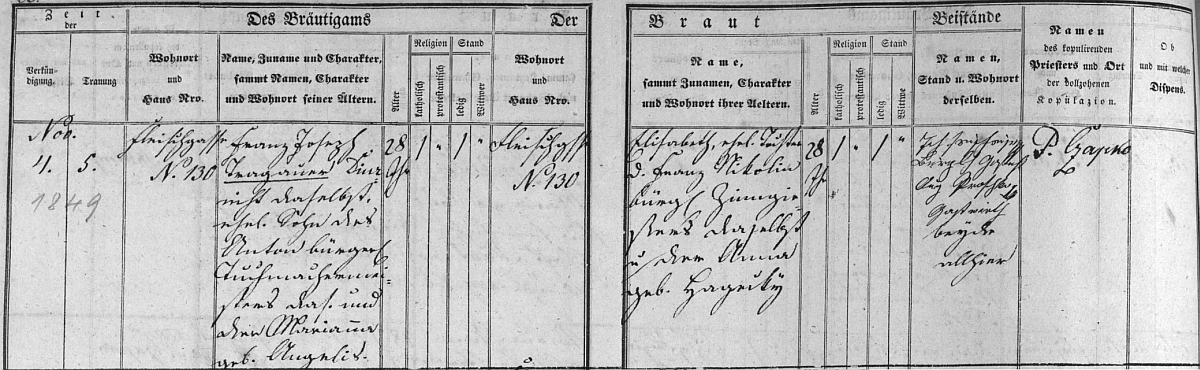 Zeit.
der
Verkün-
digung,
Trauung
Des Bräutigams
Wohnort
und
Haus Nro.
Name, Zuname und Charakter,
sammt Namen, Charakter
und Wohnort seiner Ältern.
Alter
Religion
katholisch
protestantisch
Stand
ledig
Wittwer
Der
Wohnort
und
Haus Nro.
Braut
Name,
sammt Zunamen, Charakter
und Wohnort ihrer Aeltern.
Alter
Religion
katholisch
protestantisch
Stand
ledig
Wittwe
Beistände
Namen,
Stand u. Wohnort
derselben.
Namen
des kopulirenden
Priesters und Ort
der vollzohenen
Kopulazion.
Ob
und mit welcher
Dispens.
Nov.
4. 5.
1849
Fleischgasse
N. 130
Franz Joseph
Tragauer
daselbst,
ehel. Sohn des
Anton bürgerl
Tuchmachermei-
sters das. und
der Marianna
geb. Angelis.
28
Jhr
1 " 1 "
Fleischgasse
N. 130
Elisabeth, ehel. Tochter
d. Franz Nikolin
bürgl Zinngie-
ßers daselbst
u der Anna
geb. Hageitzky
28
Jh
1 " 1 "
bürgl
Gastwirth
beyde
allhier
P.